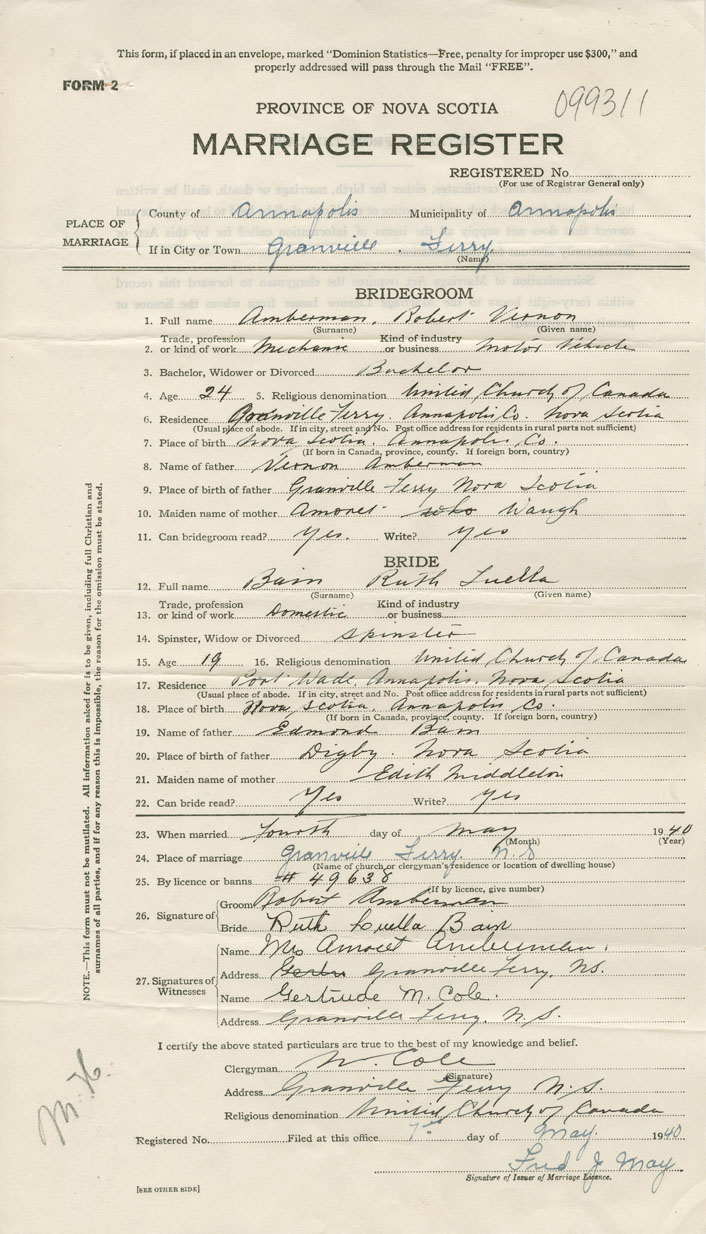 This form, if placed in an envelope, marked "Dominion Statistics—Free, penalty for improper use $300," and
properly addressed will pass through the Mail "FREE".
FORM 2
099311
PROVINCE OF NOVA SCOTIA
MARRIAGE REGISTER
REGISTERED No.
(For use of Registrar General only)
PLACE OF MARRIAGE
County of Annapolis Municipality of Annapolis
If in City or Town Granville Ferry
(Name)
BRIDEGROOM
1. Full name Amberman, Robert Vernon
(Surname) (Given name)
2. Trade, profession or kind of work Mechanic Kind of industry or business Motor Vehicle
3. Bachelor, Widower or Divorced Bachelor
4. Age 24 5. Religious denomination United Church of Canada
6. Residence Granville Ferry. Annapolis Co. Nova Scotia
(Usual place of abode. If in city, street and No. Post office address for residents in rural parts not sufficient)
7. Place of birth Nova Scotia. Annapolis Co.
(If born in Canada, province, county. If foreign born, country)
8. Name of father Vernon Amberman
9. Place of birth of father Granville Ferry Nova Scotia
10. Maiden name of mother Amoret Waugh
11. Can bridegroom read? Yes. Write? Yes
BRIDE
12. Full name Bain Ruth Luella
(Surname) (Given name)
13. Trade, profession or kind of work Domestic Kind of industry or business
14. Spinster, Widow or Divorced Spinster
15. Age 19 16. Religious denomination United Church of Canada
17. Residence Port Wade, Annapolis, Nova Scotia
(Usual place of abode. If in city, street and No. Post office address for residents in rural parts not sufficient)
18. Place of birth Nova Scotia, Annapolis Co.
(If born in Canada, province, county. If foreign born, country)
19. Name of father Edmond Bain
20. Place of birth of father Digby. Nova Scotia
21. Maiden name of mother Edith Middleton
22. Can bride read? Yes Write? Yes
23. When married fourth day of May 1940
(Month) (Year)
24. Place of marriage Granville Ferry. N.S
(Name of church or clergyman's residence or location of dwelling house)
25. By licence or banns # 49638
(If by licence, give number)
26. Signature of
Groom Robert Amberman
Bride Ruth Luella Bain
27. Signatures of Witnesses
Name Mrs Amoret Amberman.
Address Granville Ferry, NS.
Name Gertrude M. Cole.
Address Granville Ferry, N.S.
I certify the above stated particulars are true to the best of my knowledge and belief.
Clergyman W. Cole
(Signature)
Address Granville Ferry N.S.
Religious denomination United Church of Canada
Registered No. Filed at this office 7th day of May 1940
Fred J May
Signature of Issuer of Marriage Licence.
[SEE OTHER SIDE]
NOTE.—This form must not be mutilated. All information asked for is to be given, including full Christian and
surnames of all parties, and if for any reason this is impossible, the reason for the omission must be stated.